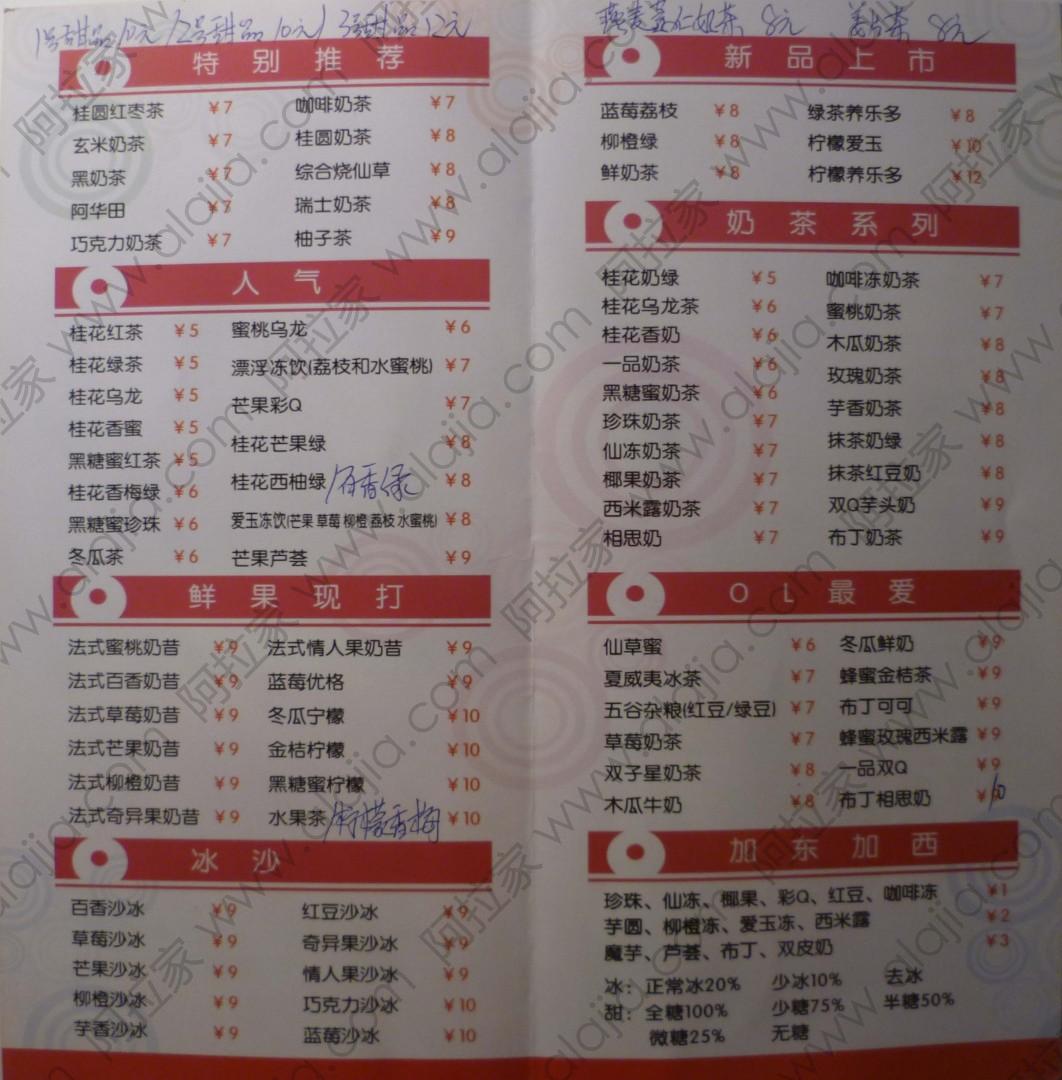 1号甜品10元/2号甜品10元/3号甜品12元
特别推荐
桂圆红枣茶 ¥7 咖啡奶茶 ¥7
玄米奶茶 ¥7 桂圆奶茶 ¥8
黑奶茶 ¥7 综合烧仙草 ¥8
阿华田 ¥7 瑞士奶茶 ¥8
巧克力奶茶 ¥7 柚子茶 ¥9
人气
桂花红茶 ¥5 蜜桃乌龙 ¥6
桂花绿茶 ¥5 漂浮冻饮(荔枝和水蜜桃) ¥7
桂花乌龙 ¥5 芒果彩Q ¥7
桂花香蜜 ¥5 桂花芒果绿 ¥8
黑糖蜜红茶 ¥5 桂花西柚绿/百香绿 ¥8
桂花香梅绿 ¥6 爱玉冻饮(芒果 草莓 柳橙 荔枝 水蜜桃) ¥8
黑糖蜜珍珠 ¥6 芒果芦荟 ¥9
冬瓜茶 ¥6
鲜果现打
法式蜜桃奶昔 ¥9 法式情人果奶昔 ¥9
法式百香奶昔 ¥9 蓝莓优格 ¥9
法式草莓奶昔 ¥9 冬瓜宁檬 ¥10
法式芒果奶昔 ¥9 金桔柠檬 ¥10
法式柳橙奶昔 ¥9 黑糖蜜柠檬 ¥10
法式奇异果奶昔 ¥9 水果茶/柠檬香梅 ¥10
冰沙
百香沙冰 ¥9 红豆沙冰 ¥9
草莓沙冰 ¥9 奇异果沙冰 ¥9
芒果沙冰 ¥9 情人果沙冰 ¥9
柳橙沙冰 ¥9 巧克力沙冰 ¥10
芋香沙冰 ¥9 蓝莓沙冰 ¥10
燕麦薏仁奶茶 8元 姜母茶 8元
新品上市
蓝莓荔枝 ¥8 绿茶养乐多 ¥8
柳橙绿 ¥8 柠檬爱玉 ¥10
鲜奶茶 ¥8 柠檬养乐多 ¥12
奶茶系列
桂花奶绿 ¥5 咖啡冻奶茶 ¥7
桂花乌龙茶 ¥6 蜜桃奶茶 ¥7
桂花香奶 ¥6 木瓜奶茶 ¥8
一品奶茶 ¥6 玫瑰奶茶 ¥8
黑糖蜜奶茶 ¥6 芋香奶茶 ¥8
珍珠奶茶 ¥7 抹茶奶绿 ¥8
仙冻奶茶 ¥7 抹茶红豆奶 ¥8
椰果奶茶 ¥7 双Q芋头奶 ¥9
西米露奶茶 ¥7 布丁奶茶 ¥9
相思奶 ¥7
OL最爱
仙草蜜 ¥6 冬瓜鲜奶 ¥9
夏威夷冰茶 ¥7 蜂蜜金桔茶 ¥9
五谷杂粮(红豆/绿豆) ¥7 布丁可可 ¥9
草莓奶茶 ¥7 蜂蜜玫瑰西米露 ¥9
双子星奶茶 ¥8 一品双Q ¥9
木瓜牛奶 ¥8 布丁相思奶 ¥10
加东加西
珍珠、仙冻、椰果、彩Q、红豆、咖啡冻 ¥1
芋圆、柳橙冻、爱玉冻、西米露 ¥2
魔芋、芦荟、布丁、双皮奶 ¥3
冰：正常冰20% 少冰10% 去冰
甜：全糖100% 少糖75% 半糖50%
微糖25% 无糖
阿拉家 www.alajia.com